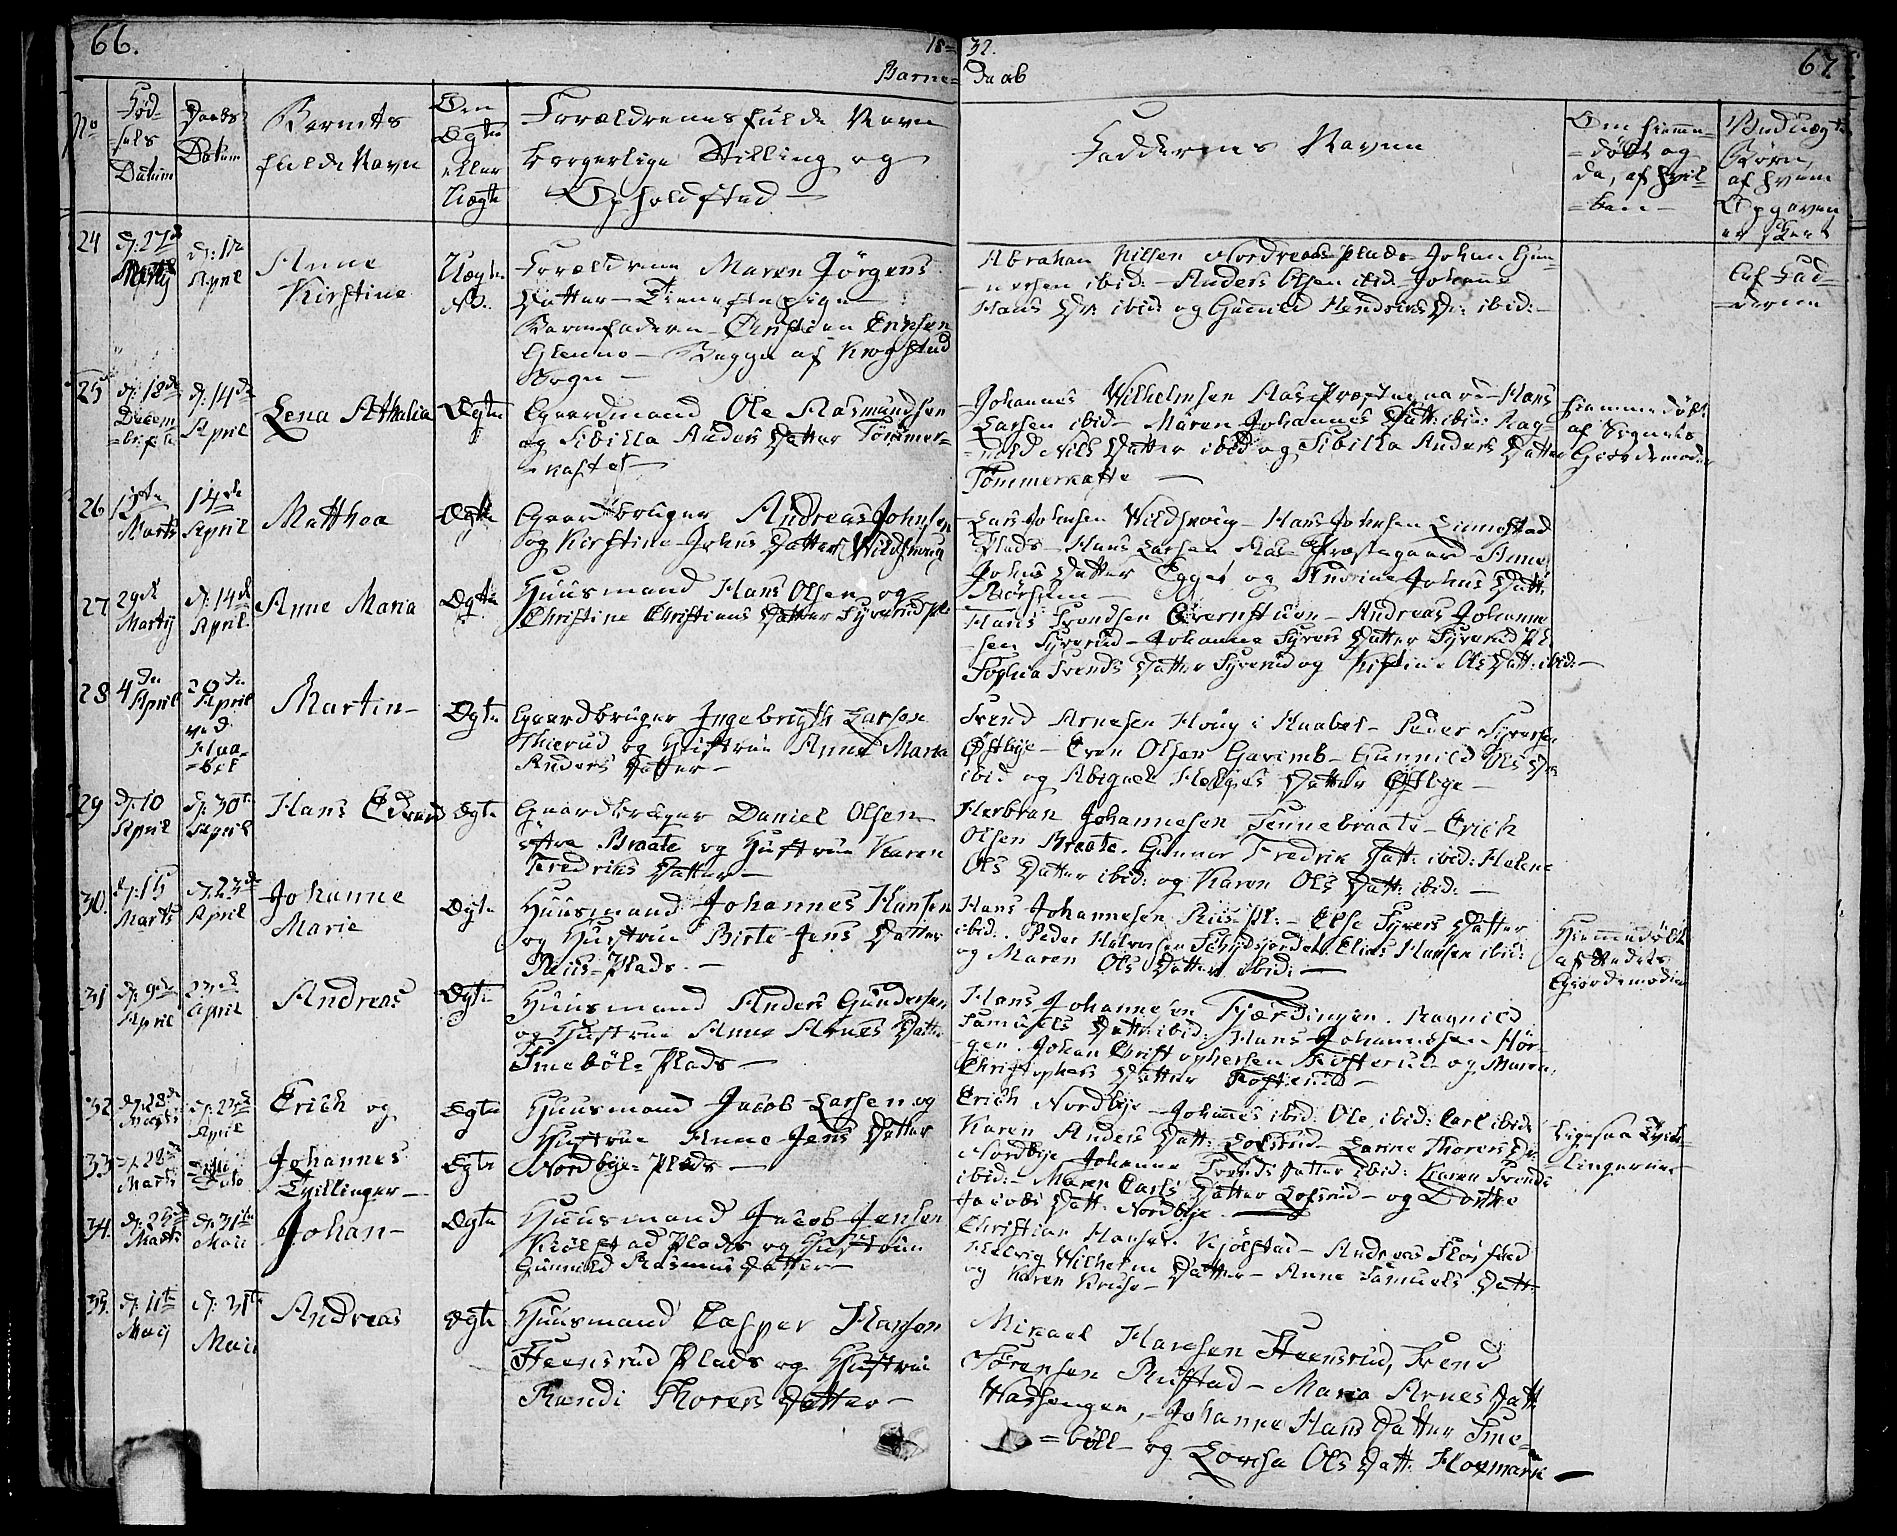 66.
18=
32.
67.
Barne=
Daab
No
Fød-
-sels
Datum
Daabs
Datum
Barnets
fulde Navn
Om
Ægte
eller
Uægte
Forældrenes fulde Navn
borgerlige Stilling og
Opholdsted —
Faddernes Navne
Om hiemme-
=døbt og
da, af hvil=
=ken —
Ved uægte
Børn,
af hvem
Opgaven
er skeet
24
d: 27de
Martij
d: 1te
April
Anne
Kirstine
Uægte
Forældrene Maren Jörgens
Datter — Tienestepige —
Barnefaderen — Christian
Glenne — Begge af Krogstad
Sogn —
Abraham Nilsen Nordreaas Plads — Johan Gun-
-nersen ibid: — Anders Olsen ibid Johanne
Hans Dr. ibid: og Gunild Hendriks Dr: ibid: —
Af Fad=
=derne
25
d: 18de
Decem
d: 14de
April
Lena Athalia
Ægte
Gaardmand Ole Aasmundsen
og Sibilla Anders Datter Tömmer-
Johannes Wilhelmsen Aas Præstegaard — Hans
Larsen ibid — Maren Johannes Datt: ibid: Rag-
=nild Nils Datter ibid og Sibilla Anders Datter
Hiemmedöbt
af
Giordemoder
26
Marts
14de
April
Matthea
Ægte
Gaardbruger Andreas Johnsen
og Kirstine Johns Datter
Lars Johnsen — Hans Johnsen
Plads — Hans Larsen Aas Præstegaard — Anne
Johns Datter Egget og Andrine Johns Datt:
27
29de
Martij
d: 14de
April.
Anne Maria
Ægte
Huusmand Hans Olsen og
Christine Christians Datter Syverud Pl:
Hans Svendsen — Andreas Johanne
-sen Syverud — Johanne Syvers Datter Syverud Pl:
Sophia Svends Datter Syverud og Kistine Ols Datt: ibid: —
28
4de
April
20de
April
ved
Naa-
Martin —
Ægte
Gaardbruger Ingebrigth Larsen
Thierud og Hustrue Anne Maria
Anders Datter —
Svend Arnesen Houg i Naabel — Peder Syversen
Østbye — Even Olsen — Gunnild Ols Dr
ibid og Abigael Helges Datter Østbye —
29
d: 10
April
d: 30te
April
Hans Edvard
Ægte
Gaardbruger Daniel Olsen
Braate og Hustrue Karen
Fredriks Datter —
Herbran Johannesen Tennebraate — Erich
Olsen Braate. Gunnor Fredrik Datt: ibid: Helene
Ols Datter ibid: og Karen Ols Datt: ibid: —
30.
d: 15
Marts
d: 23de
April
Johanne
Marie
Ægte
Huusmand Johannes Hansen
og Hustrue Birte Jens Datter
Ruus-Plads. —
Hans Johannesen Ruus Pl: — Else Syvers Datter
ibid. Peder Halvorsen Elias Hansen ibid:
og Maren Ols Datter ibid: —
Hiemmedöbt
af
Giordemoder
31
d: 9de
April
23de
April
Andreas
Ægte
Huusmand Anders Gundersen
og Hustrue Anne Arnes Datter
Smeböl= Plads —
Hans Johannesen Fjærdingen. Ragnild
Samuels Datt: ibid: Hans Johannesen Hör-
gen. Johan Christophersen Tosterud og Maren
Christophers Datter Tosterud —
32
d: 28de
Marts
d: 23de
April
Erich og
Ægte
Huusmand Jacob Larsen og
Hustrue Anne Jens Datter
Nordbye= Plads —
Erich Nordbye — Johannes ibid: Ole ibid: Carl ibid:
Karen Anders Datt: Lofsrud — Larine Thorers Dr
Nordbye Johanne Svends Datter ibid: Karen Svends
ibid: — Maren Carls Datter Lofsrud — og Dorthe
Jacobs Datt: Nordbye
Ligesaa Tvil
=lingerne
33
d: 28de
Marts
Johannes
Tvillinger —
Ægte
34.
Marts
d: 31te
Maii
Johan —
Ægte
Huusmand Jacob Jensen
Kiölstad Plads og Hustrue
Gunnild Rasmus Datter —
Christian Hansen Kjölstad — Andreas
Helvig Wilhelm Datter — Anne Samuels Datt:
og Karen Kruse —
35.
d: 11te
Maij
d: 31te
Maii
Andreas
Ægte
Huusmand Casper Hansen
Steensrud Plads og Hustrue
Randi Thorers Datter —
Mikael Hansen Steensrud, Svend
Sörensen Rustad — Maria Arnes Datt
Wassengen, Johanne Hans Datter Sme-
=böll — og Lovisa Ols Datt: